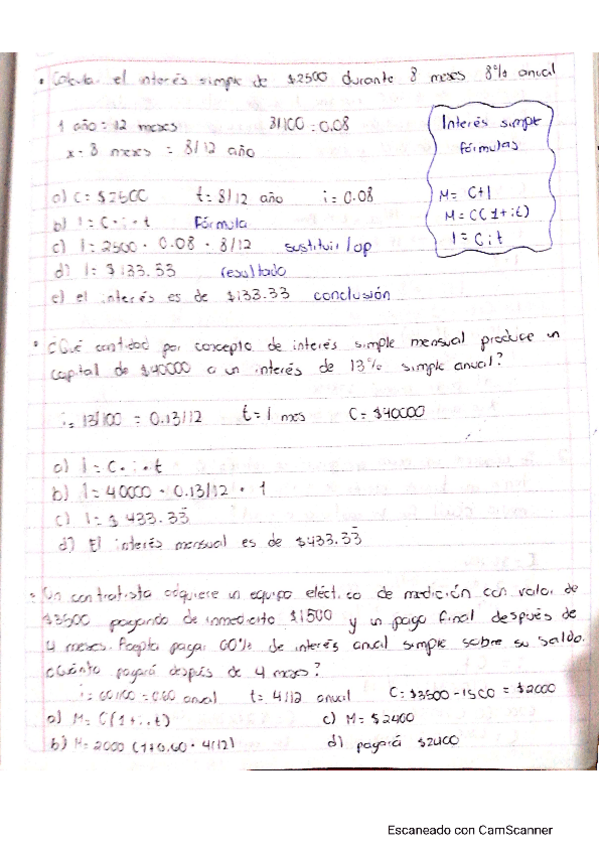 • Calcula el interés simple de $2500 durante 8 meses 8% anual
1 año = 12 meses 8/100 = 0.08
x - 8 meses = 8/12 año
Interés simple
fórmulas
M= C+I
M= C(1+it)
I = Cit
a) C= $2500 t= 8/12 año i= 0.08
b) I = C · i · t Fórmula
c) I= 2500 · 0.08 · 8/12 sustituir/op
d) I= $133.33 resultado
e) el interés es de $133.33 conclusión
• ¿Qué cantidad por concepto de interés simple mensual produce un
capital de $40000 a un interés de 13% simple anual?
i= 13/100 = 0.13/12 t= 1 mes C= $40000
a) I = C · i · t
b) I = 40000 · 0.13/12 · 1
c) I= $ 433.33
d) El interés mensual es de $433.33
• Un contratista adquiere un equipo eléctrico de medición con valor de
$3500 pagando de inmediato $1500 y un pago final después de
4 meses. Acepta pagar 60% de interés anual simple sobre su saldo.
¿Cuánto pagará después de 4 meses?
i= 60/100 = 0.60 anual t= 4/12 anual C= $3500 - 1500 = $2000
a) M= C(1+i.t) c) M= $2400
b) M= 2000 (1+0.60 · 4/12) d) pagará $2400
Escaneado con CamScanner